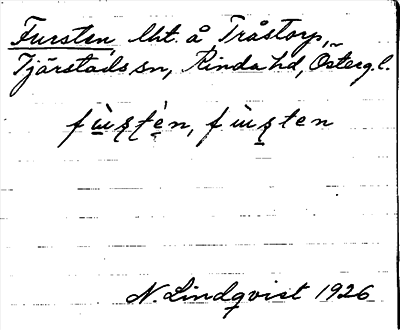 Fursten, lht. å Tråstorp,
Tjärstads sn, Kinda hd, Österg.l.
N. Lindqvist 1926